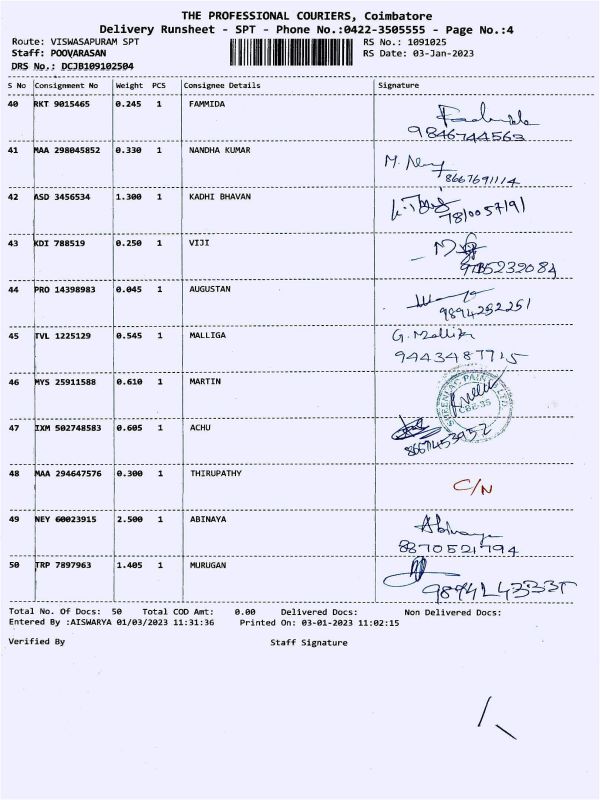 THE PROFESSIONAL COURIERS, Coimbatore
Delivery Runsheet - SPT - Phone No.:0422-3505555 - Page No.:4
Route: VISWASAPURAM SPT RS No.: 1091025
Staff: POOVARASAN RS Date: 03-Jan-2023
DRS No.: DCJB109102504
S No Consignment No Weight PCS Consignee Details Signature
40 RKT 9015465 0.245 1 FAMMIDA
9846744563
41 MAA 298045852 0.330 1 NANDHA KUMAR
8667691114
42 ASD 3456534 1.300 1 KADHI BHAVAN
7810057191
43 KDI 788519 0.250 1 VIJI
44 PRO 14398983 0.045 1 AUGUSTAN
9894252251
45 TVL 1225129 0.545 1 MALLIGA G. Mallika
9443487715
46 MYS 25911588 0.610 1 MARTIN
CBE-35
47 IXM 502748583 0.605 1 ACHU
48 MAA 294647576 0.300 1 THIRUPATHY C/N
49 NEY 60023915 2.500 1 ABINAYA Abinaya
8870521794
50 TRP 7897963 1.405 1 MURUGAN
Total No. Of Docs: 50 Total COD Amt: 0.00 Delivered Docs: Non Delivered Docs:
Entered By :AISWARYA 01/03/2023 11:31:36 Printed On: 03-01-2023 11:02:15
Verified By Staff Signature